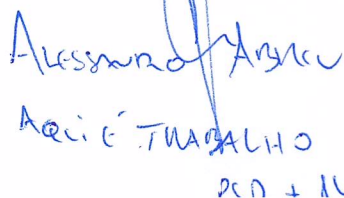 Alessandro Abreu
Aqui é TRABALHO